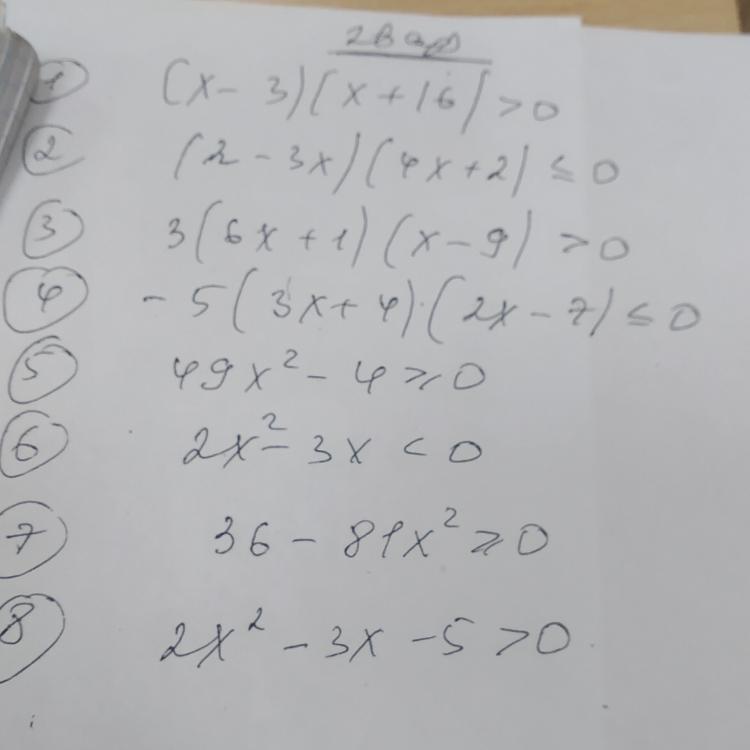 2 Вар
1 (x - 3)(x + 16) > 0
2 (2 - 3x)(4x + 2) ≤ 0
3 3(6x + 1)(x - 9) > 0
4 - 5(3x + 4)·(2x - 7) ≤ 0
5 49x² - 4 ≥ 0
6 2x² - 3x < 0
7 36 - 81x² ≥ 0
8 2x² - 3x - 5 > 0